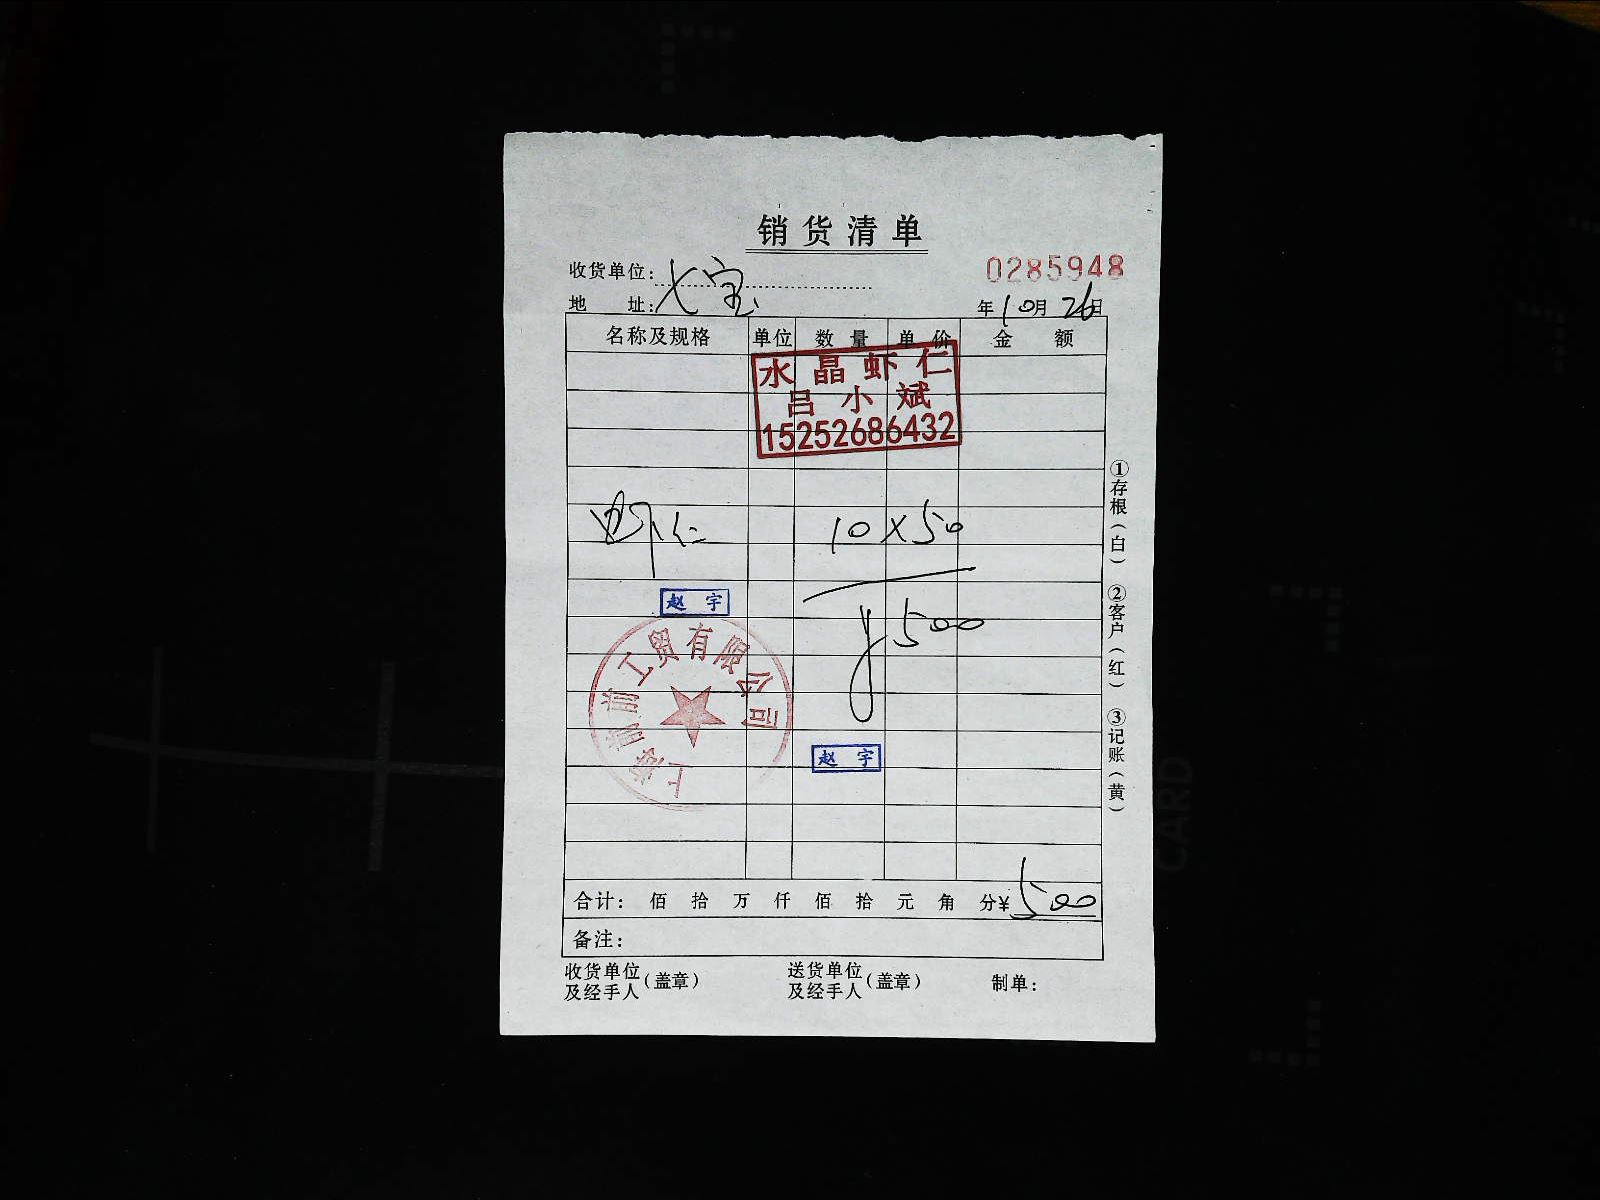 销货清单
收货单位: 七宝
0285948
地 址:
年10月26日
名称及规格 单位 数量 单价 金额
水晶虾仁
吕小斌
15252686432
虾仁 10×50
赵宇
¥500
上海前前工贸有限公司
赵宇
合计: 佰 拾 万 仟 佰 拾 元 角 分¥500
备注:
收货单位及经手人(盖章) 送货单位及经手人(盖章) 制单:
①存根(白) ②客户(红) ③记账(黄)
CARD